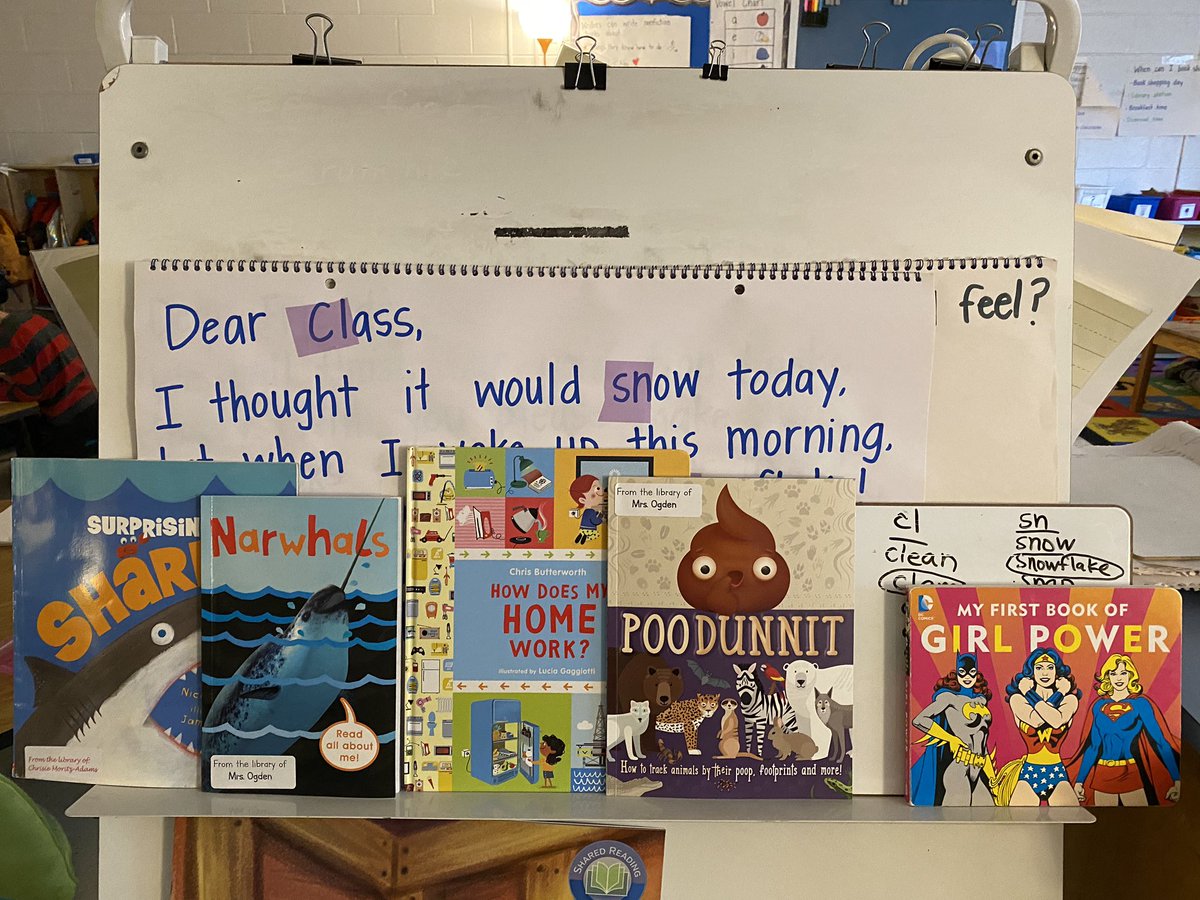 Writers can write nonfiction
Vowel Chart
a
e
When can I book sh
· Book shopping day
· Library station
· Breakfast time
· Dismissal time
Dear Class,
feel?
I thought it would snow today,
but when I woke up this morning,
cl
sn
clean
snow
snowflake
SURPRISIN
SHAR
From the library of
Chrisie Moritz-Adams
Narwhals
Read
all about
me!
From the library of
Mrs. Ogden
Chris Butterworth
HOW DOES MY
HOME
WORK?
Illustrated by Lucia Gaggiotti
From the library of
Mrs. Ogden
POODUNNIT
How to track animals by their poop, footprints and more!
DC
COMICS
MY FIRST BOOK OF
GIRL POWER
SHARED READING